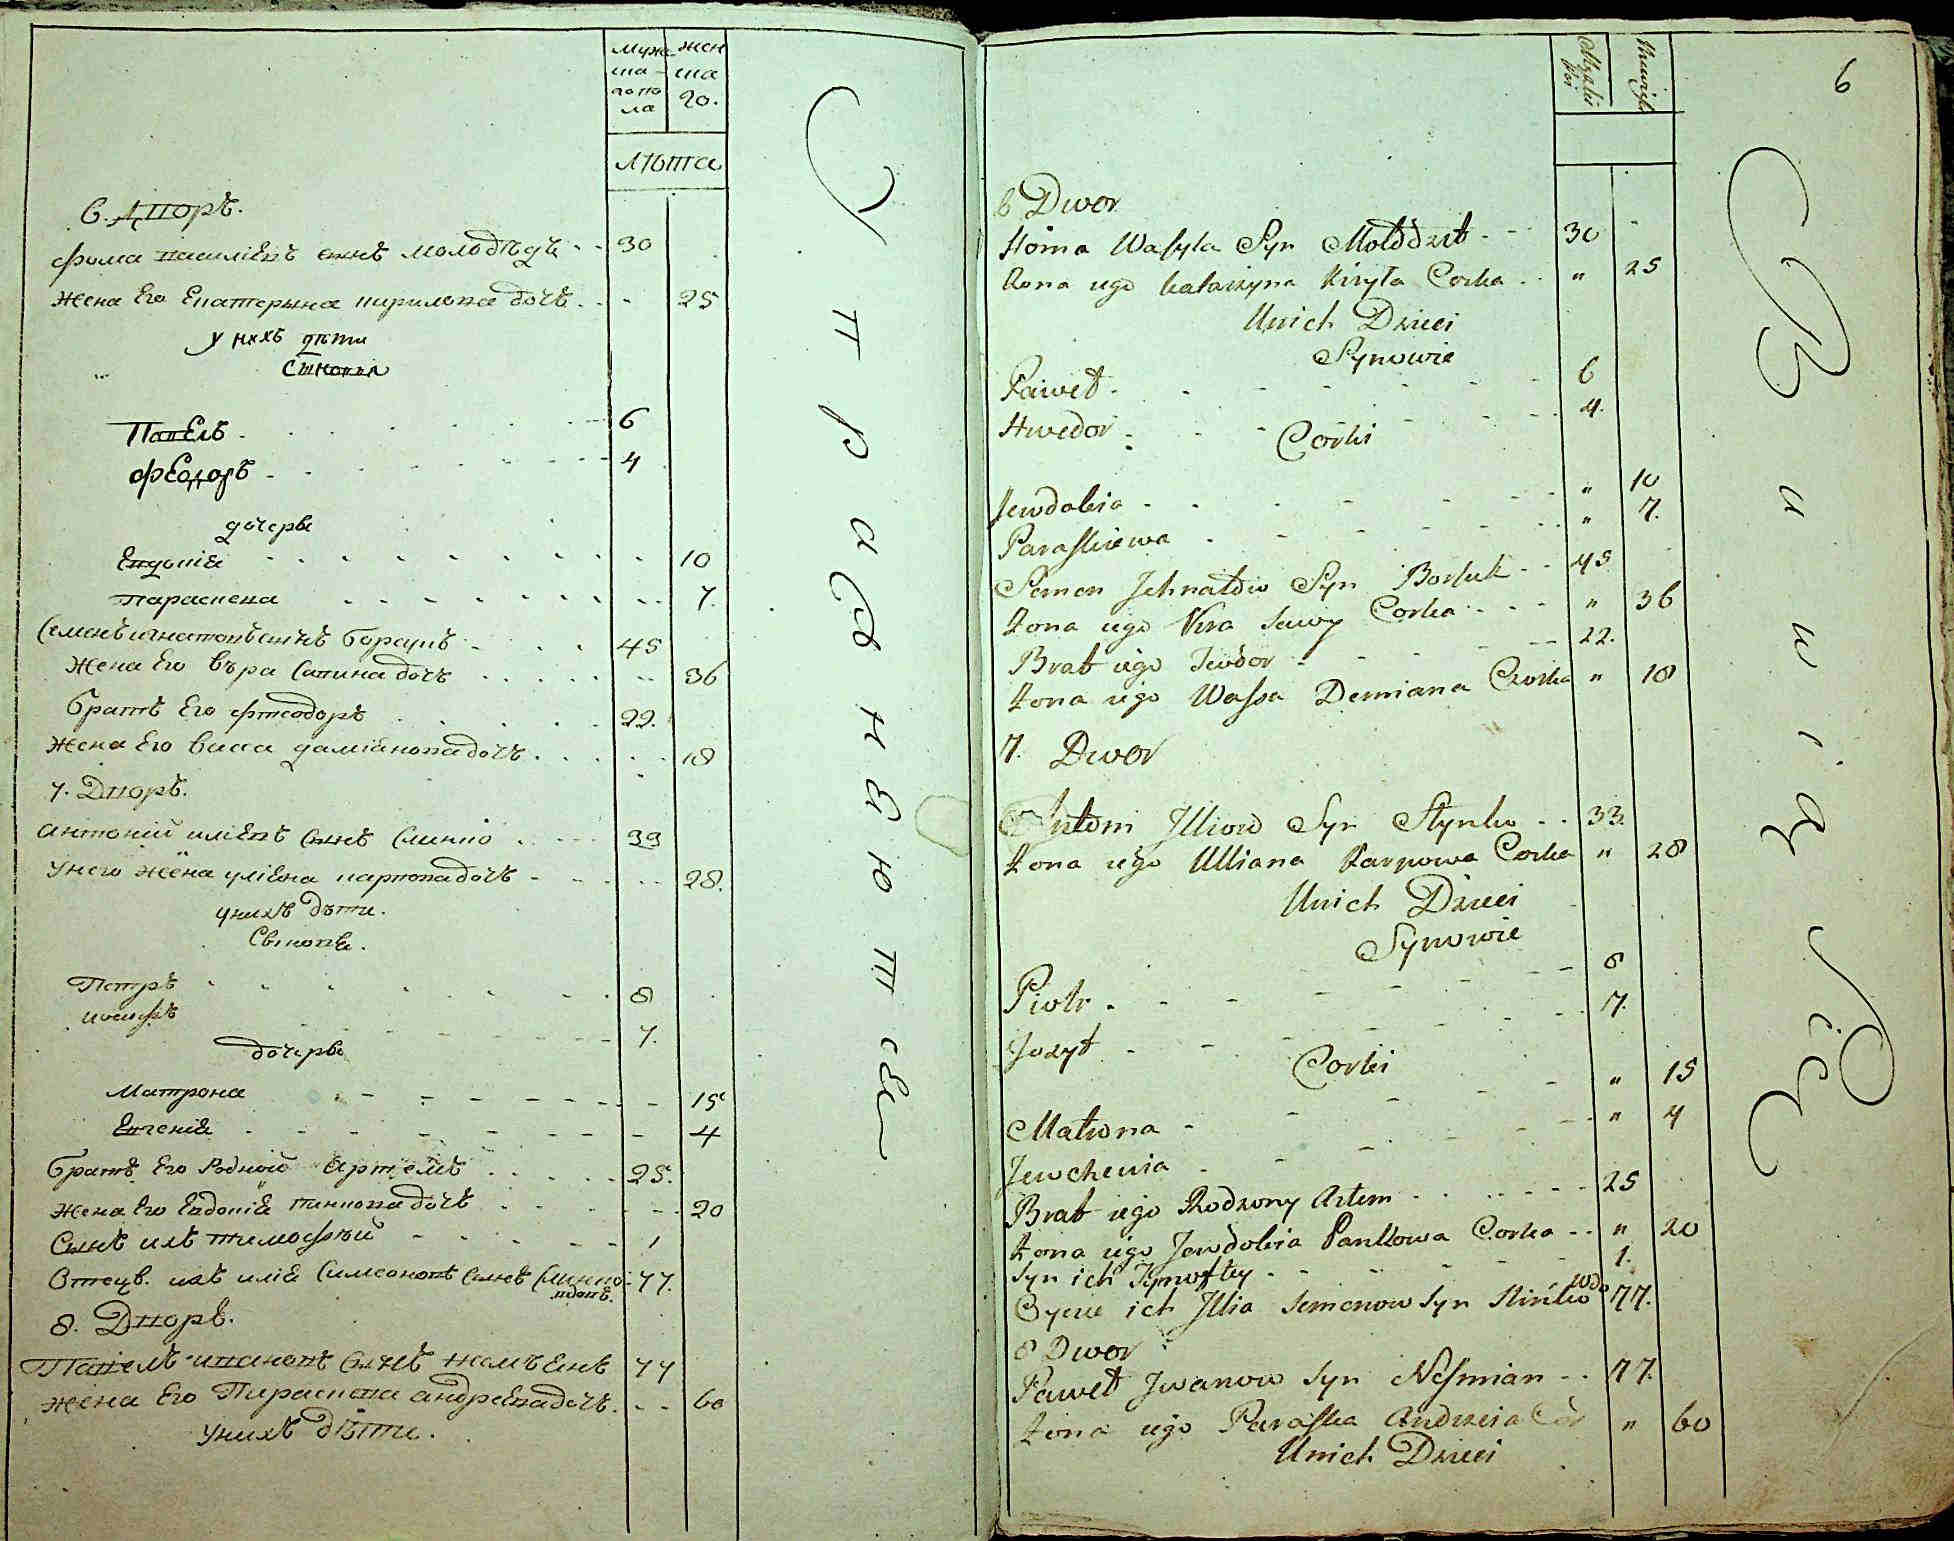 муже жен
ска ска
го по го.
ла
лѣта
6. Дворъ.
Фома василіевъ синъ молодѣдъ 30
жена Его Екатерына кирилова дочъ 25
у нихъ дѣти
Синовя
Павелъ 6
Феодоръ 4
дочеры
Евдокія 10
Параскева 7.
Семенъ игнатовъ синъ борсукъ 45
жена Его вѣра Савина дочъ 36
братъ Его фтеодоръ 22.
жена Его васса даміянова дочъ 18
7. Дворъ.
антоній иліевъ синъ Слинко 33
унего жена уліяна карпова дочъ 28.
унихъ дѣти.
Синовя.
Петръ 8
иосифъ 7.
дочеры
Матрона 15
Евгенія 4
братъ Его Родной Артемъ 25.
жена Его Евдокія панкова дочъ 20
Синъ ихъ тимофѣй 1
Отецъ ихъ илія Симеоновъ синъ Слинко 77.
вдовъ.
8. Дворъ.
Павелъ ивановъ синъ несмѣянъ 77
жена Его Параскева андреева дочъ. 60
унихъ дѣти.
У п р а ж н я ю т ся
6
Męzkii
płci
Żeńskii
6 Dwor
Homa Wasyla Syn Mołodzit 30
Żona iego katarzyna kiryła Corka " 25
Unich Dzieci
Synowie
Paweł 6
Hwedor 4.
Corki
Jewdokia " 10
Paraskiewa " 7.
Semen Jehnatow Syn Borsuk 45
Żona iego Wera Sawy Corka " 36
Brat iego Teodor 22.
Żona iego Wassa Demiana Corka " 18
7. Dwor
Antoni Jlliow Syn Slynko 33.
Żona iego Ulliana Karpowa Corka " 28
Unich Dzieci
Synowie
Piotr 8
Jozyf 7.
Corki
Matrona " 15
Jewchenia " 4
Brat iego Rodzony Artem 25
Żona iego Jewdokia Pankowa Corka " 20
Syn ich Tymoftey 1.
Oyciec ich Jllia Semenow Syn Slinko wdo 77.
8 Dwor
Paweł Jwanow Syn Nesmian 77.
Żona iego Paraska Andreia Cor " 60
Unich Dzieci